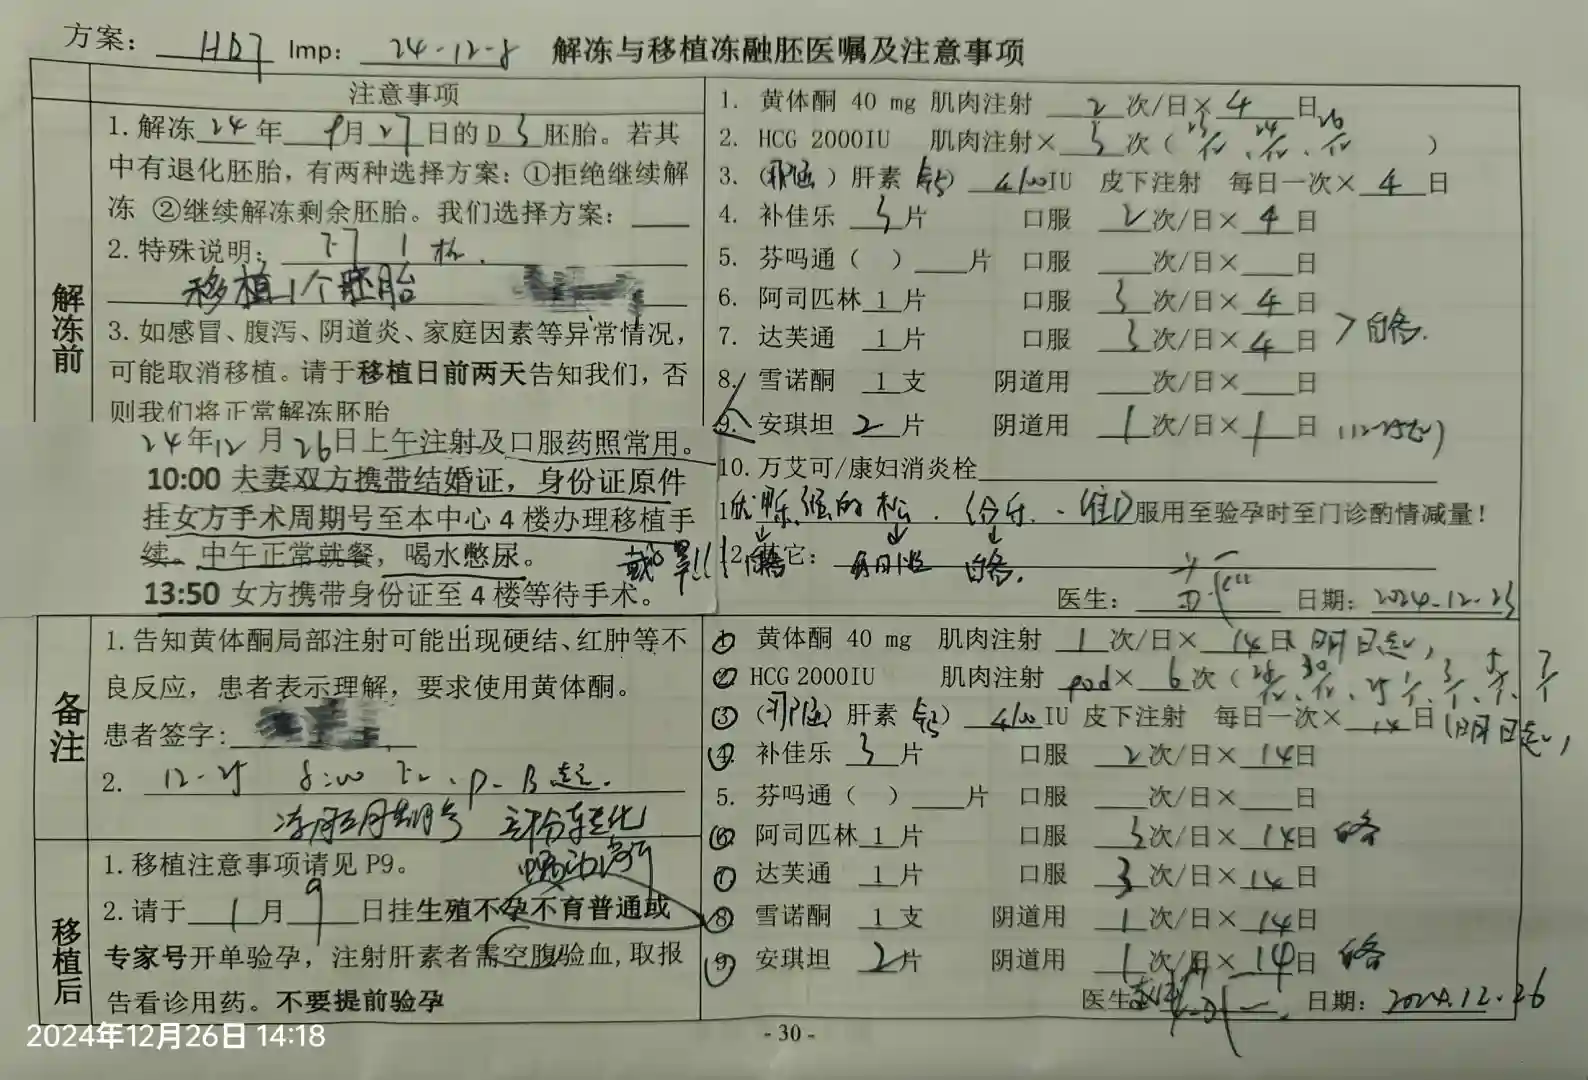 方案： HDT Imp： 24-12-8 解冻与移植冻融胚医嘱及注意事项
注意事项
解冻前
1.解冻 24 年 9 月 27 日的 D 5 胚胎。若其
中有退化胚胎，有两种选择方案：①拒绝继续解
冻 ②继续解冻剩余胚胎。我们选择方案：
2.特殊说明： 1
移植1个胚胎
3.如感冒、腹泻、阴道炎、家庭因素等异常情况，
可能取消移植。请于移植日前两天告知我们，否
则我们将正常解冻胚胎
24年12月26日上午注射及口服药照常用。
10:00 夫妻双方携带结婚证，身份证原件
挂女方手术周期号至本中心4楼办理移植手
续。中午正常就餐，喝水憋尿。
13:50 女方携带身份证至4楼等待手术。
1. 黄体酮 40 mg 肌肉注射 2 次/日× 4 日
2. HCG 2000IU 肌肉注射× 3 次（ 24 、 26 ）
3.（那屈）肝素 钙） 4100IU 皮下注射 每日一次× 4 日
4. 补佳乐 3 片 口服 2 次/日× 4 日
5. 芬吗通（ ） 片 口服 次/日× 日
6. 阿司匹林 1 片 口服 3 次/日× 4 日
7. 达芙通 1 片 口服 3 次/日× 4 日 自备.
8. 雪诺酮 1 支 阴道用 次/日× 日
9. 安琪坦 2 片 阴道用 1 次/日× 1 日 (12-25
10.万艾可/康妇消炎栓
维D 服用至验孕时至门诊酌情减量！
12.其它： 自备.
戴 !!!
医生： 日期：2024.12.23
备注
1.告知黄体酮局部注射可能出现硬结、红肿等不
良反应，患者表示理解，要求使用黄体酮。
患者签字：
2. 12-25 8:00 E2、P、B超.
① 黄体酮 40 mg 肌肉注射 1 次/日× 14日 明日起
② HCG 2000IU 肌肉注射 qod× 6 次（ 28 、 30
③（那屈）肝素 钙） 4100IU 皮下注射 每日一次× 14 日（明日起
④ 补佳乐 3 片 口服 2 次/日× 14日
5. 芬吗通（ ） 片 口服 次/日× 日
⑥ 阿司匹林 1 片 口服 3 次/日× 14日 自备
⑦ 达芙通 1 片 口服 3 次/日× 14日
⑧ 雪诺酮 1 支 阴道用 1 次/日× 14日
⑨ 安琪坦 2 片 阴道用 1 次/日× 14日 自备
医生 日期：2024.12.26
移植后
1.移植注意事项请见P9。
2.请于 1 月 9 日挂生殖不孕不育普通或
专家号开单验孕，注射肝素者需空腹验血,取报
告看诊用药。不要提前验孕
- 30 -
2024年12月26日 14:18